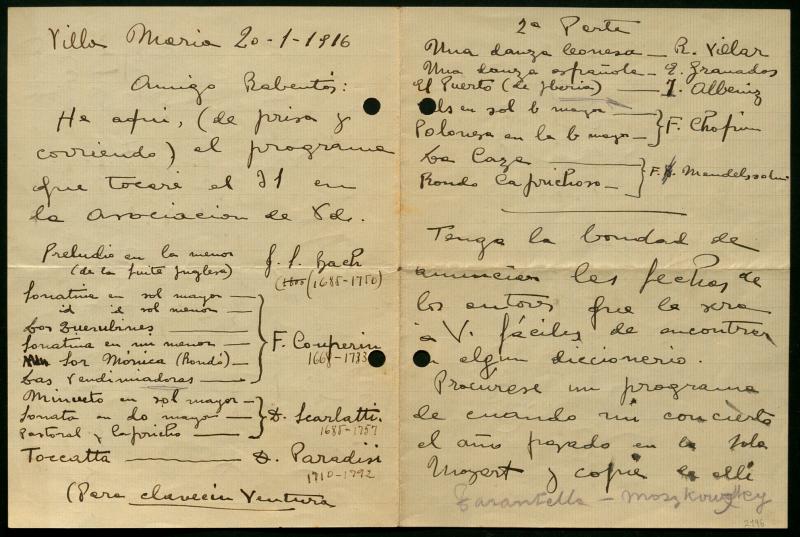 Villa Maria 20-1-916
Amigo Rabentós:
He aqui, (de prisa y
corriendo) el programa
que tocaré el 31 en
la Asociacion de Vds.
Preludio en la menor
(de la suite inglesa)
J. S. Bach
(1685-1750)
Sonatina en sol mayor
id id sol menor
Los Querubines
Sonatina en mi menor
Sor Mónica (Rondó)
Las Vendimiadoras
F. Couperin
1668-1733
Minueto en sol mayor
Sonata en do mayor
Pastoral y Capricho
D. Scarlatti
1685-1757
Toccatta — D. Paradisi
1710-1792
(Para clavecin Ventura
2ª Parte
Una danza leonesa — R. Villar
Una danza española — E. Granados
El Puerto (de Iberia) — I. Albeniz
Vals en sol b mayor
Polonesa en la b mayor
F. Chopin
La Caza
Rondo Caprichoso
F. Mendelssohn
Tenga la bondad de
anunciar las fechas de
los autores que le sera
á V. fáciles de encontrar
en algun diccionario.
Procúrese un programa
de cuando mi concierto
el año pasado en la Sala
Mozart y copie de alli
Tarantella - Moszkowsky
2196